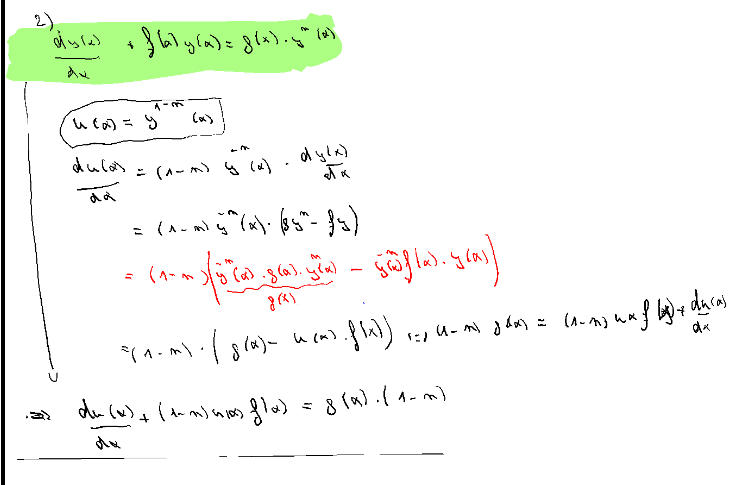 2)
dy(x)/dx + f(x) y(x) = g(x) · yⁿ(x)
u(x) = y¹⁻ⁿ(x)
du(x)/dx = (1-n) y⁻ⁿ(x) · dy(x)/dx
= (1-n) y⁻ⁿ(x) · (gyⁿ - fy)
= (1-n) (y⁻ⁿ(x) · g(x) · yⁿ(x) - y⁻ⁿ(x) f(x) · y(x))
g(x)
= (1-n) · (g(x) - u(x) · f(x)) (1-n) g(x) = (1-n) u(x) f(x) + du(x)/dx
=> du(x)/dx + (1-n) u(x) f(x) = g(x) · (1-n)